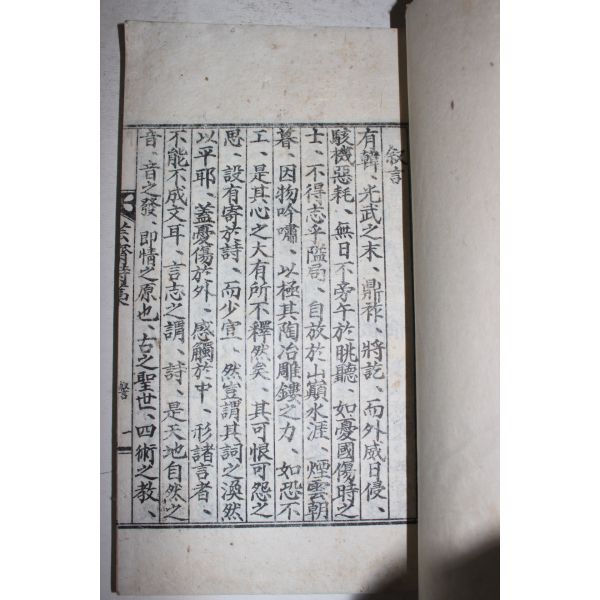 敍言
有韓、光武之末、鼎祿、將訖、而外威日侵、
駭機惡耗、無日不旁午於眺聽、如憂國傷時之
士、不得志乎隘局、自放於山巔水涯、煙雲朝
暮、因物吟嘯、以極其陶冶雕鏤之力、如恐不
工、是其心之大有所不釋然矣、其可恨可怨之
思、設有寄於詩、而少宣、然豈謂其詞之渙然
以平耶、蓋憂傷於外、感觸於中、形諸言者、
不能不成文耳、言志之謂、詩、是天地自然之
音、音之發、卽情之原也、古之聖世、四術之教、
一